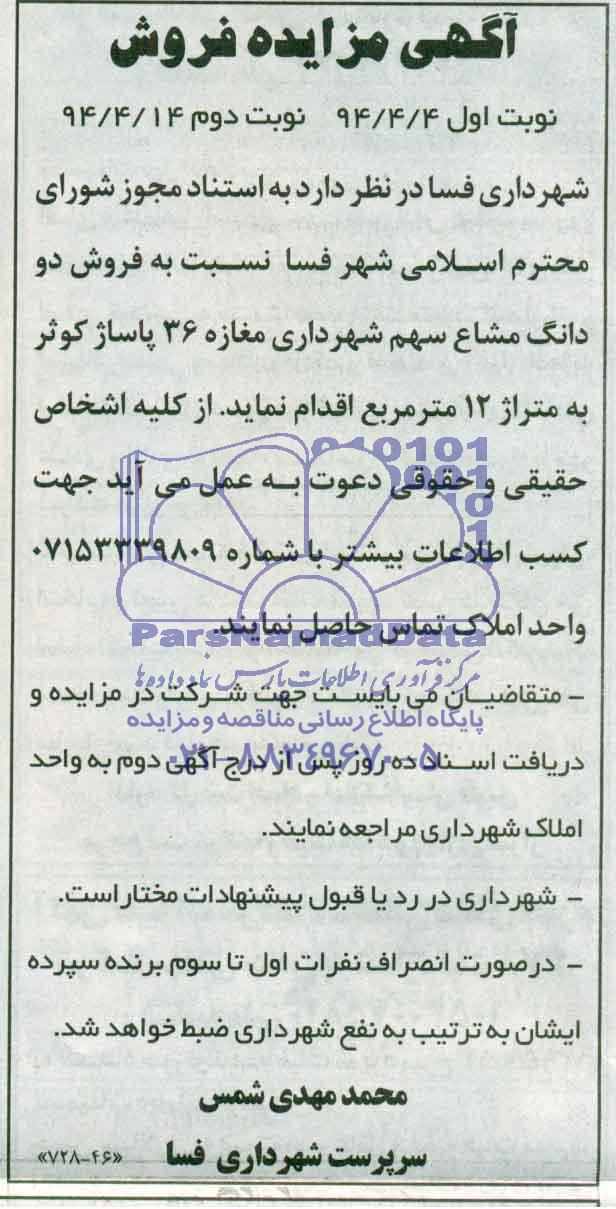 آگهی مزایده فروش
نوبت اول ۹۴/۴/۴ نوبت دوم ۹۴/۴/۱۴
شهرداری فسا در نظر دارد به استناد مجوز شورای
محترم اسلامی شهر فسا نسبت به فروش دو
دانگ مشاع سهم شهرداری مغازه ۳۶ پاساژ کوثر
به متراژ ۱۲ مترمربع اقدام نماید. از کلیه اشخاص
حقیقی و حقوقی دعوت به عمل می آید جهت
کسب اطلاعات بیشتر با شماره ۰۷۱۵۳۳۳۹۸۰۹
واحد املاک تماس حاصل نمایند.
ParsNamadData
مرکز فرآوری اطلاعات پارس نماد داده ها
– متقاضیان می بایست جهت شرکت در مزایده و
پایگاه اطلاع رسانی مناقصه و مزایده
دریافت اسناد ده روز پس از درج آگهی دوم به واحد
۰۲۱-۸۸۳۴۹۶۷۰-۵
املاک شهرداری مراجعه نمایند.
– شهرداری در رد یا قبول پیشنهادات مختار است.
– درصورت انصراف نفرات اول تا سوم برنده سپرده
ایشان به ترتیب به نفع شهرداری ضبط خواهد شد.
محمد مهدی شمس
سرپرست شهرداری فسا «۷۲۸-۴۶»